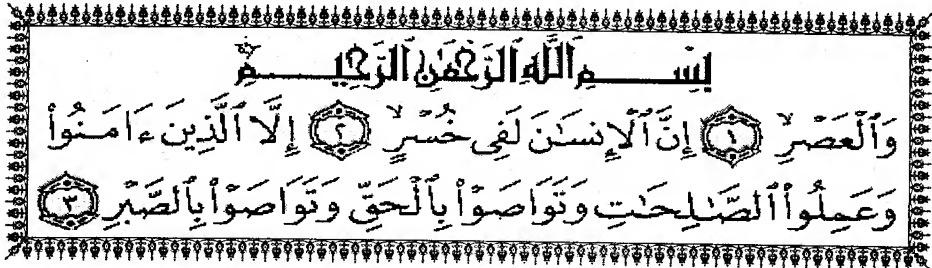 بِسْمِ ٱللَّهِ ٱلرَّحْمَٰنِ ٱلرَّحِيمِ
وَٱلْعَصْرِ ۙ ١ إِنَّ ٱلْإِنسَٰنَ لَفِى خُسْرٍ ۙ ٢ إِلَّا ٱلَّذِينَ ءَامَنُوا۟
وَعَمِلُوا۟ ٱلصَّٰلِحَٰتِ وَتَوَاصَوْا۟ بِٱلْحَقِّ وَتَوَاصَوْا۟ بِٱلصَّبْرِ ٣